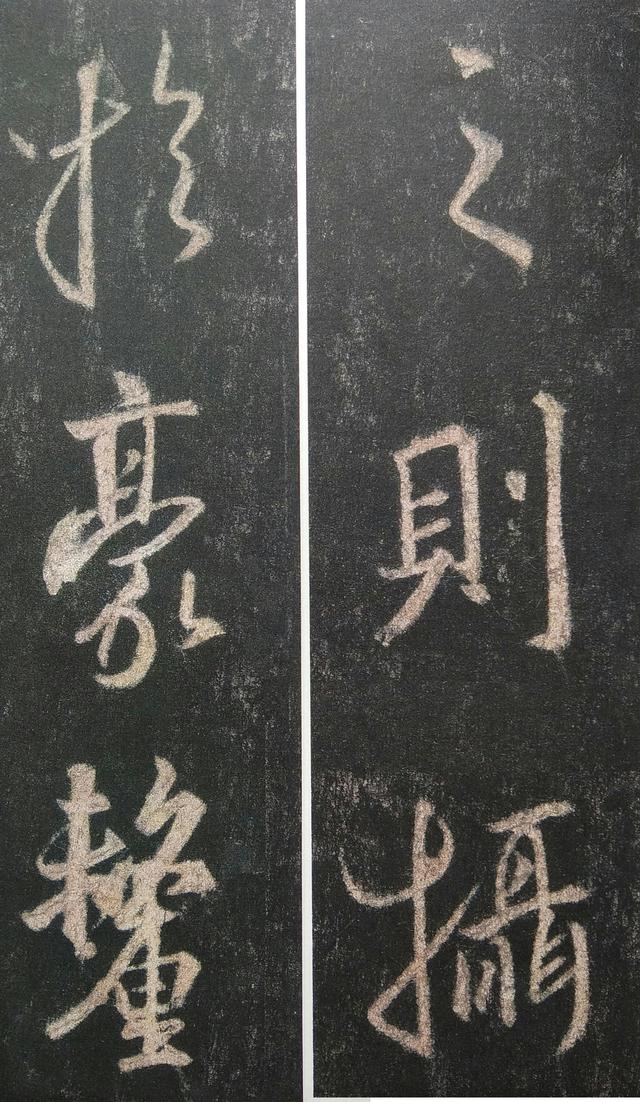 之則攝
於豪釐